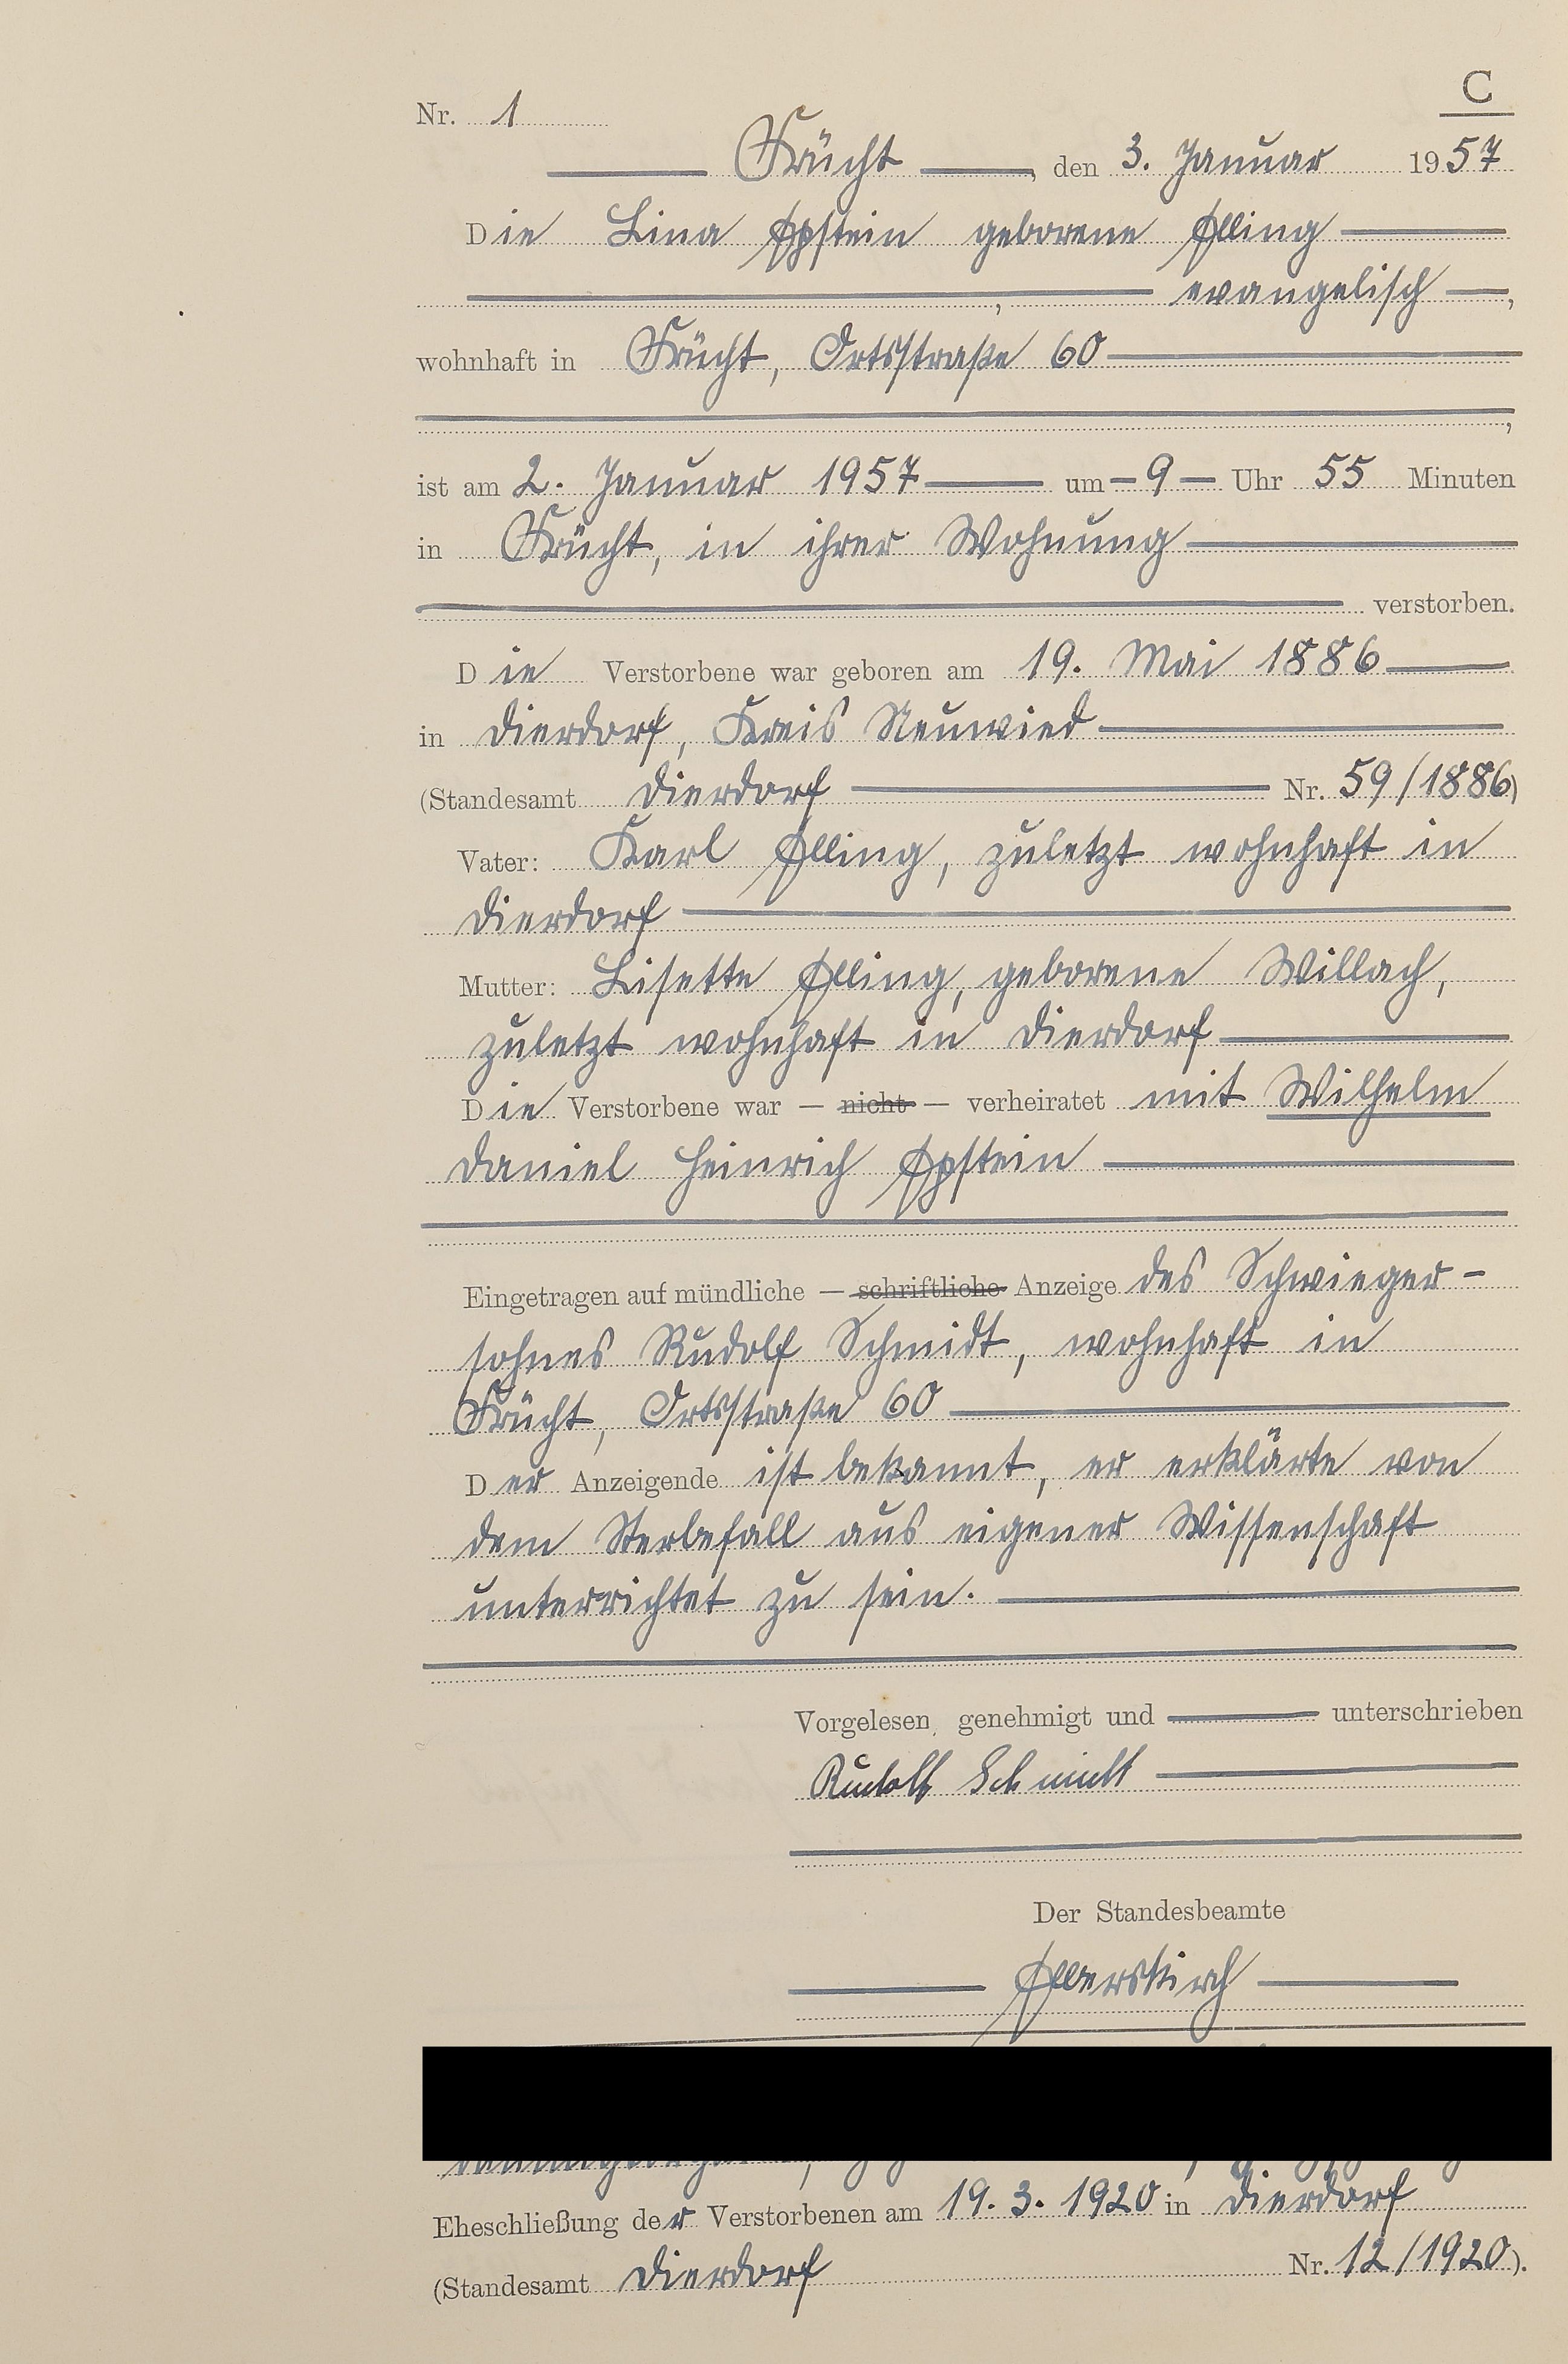 C
Nr. 1
Frücht, den 3. Januar 1957
Die Lina Epstein geborene Elling
, evangelisch,
wohnhaft in Frücht, Ortsstraße 60
,
ist am 2. Januar 1957 um 9 Uhr 55 Minuten
in Frücht, in ihrer Wohnung
verstorben.
Die Verstorbene war geboren am 19. Mai 1886
in Dierdorf, Kreis Neuwied
(Standesamt Dierdorf Nr. 59/1886)
Vater: Karl Elling, zuletzt wohnhaft in
Dierdorf
Mutter: Lisette Elling, geborene Willach,
zuletzt wohnhaft in Dierdorf
Die Verstorbene war — nicht — verheiratet mit Wilhelm
Daniel Heinrich Epstein
Eingetragen auf mündliche — schriftliche Anzeige des Schwieger-
sohnes Rudolf Schmidt, wohnhaft in
Frücht, Ortsstraße 60
Der Anzeigende ist bekannt, er erklärte von
dem Sterbefall aus eigener Wissenschaft
unterrichtet zu sein.
Vorgelesen, genehmigt und unterschrieben
Rudolf Schmidt
Der Standesbeamte
Elberskirch
Eheschließung der Verstorbenen am 19.3.1920 in Dierdorf
(Standesamt Dierdorf Nr. 12/1920).